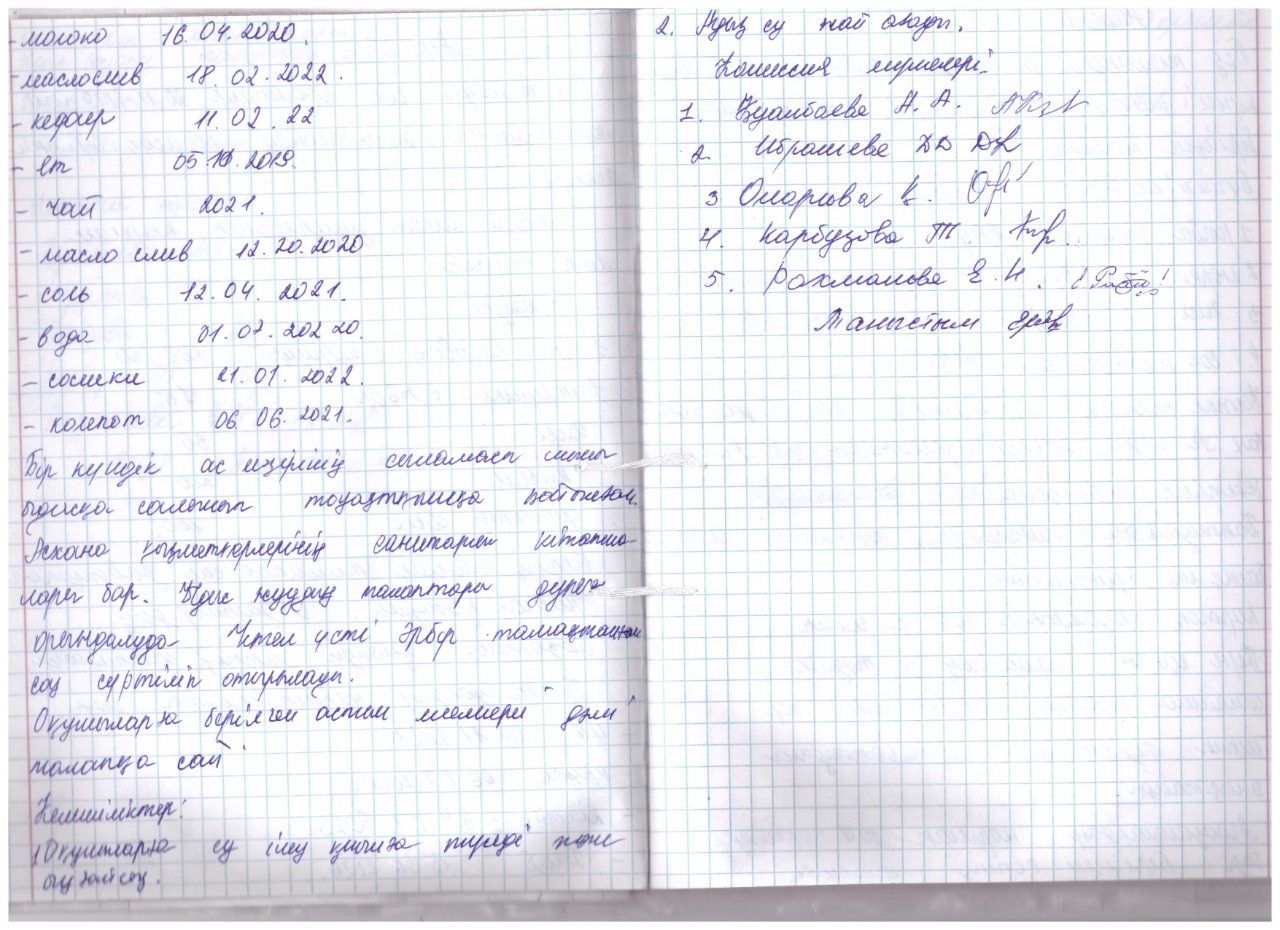 - молоко 16.04.2020.
- маслослив 18.02.2022.
- кефир 11.02.22
- ет
- чай 2021.
- масло слив 12.20.2020
- соль 12.04.2021.
- вода 01.07.202020.
- сосиски 21.01.2022.
- компот 06.06.2021.
Бір күндік ас мәзірінің сынамасы
ыдысқа салынып тоңазытқышқа
Асхана қызметкерлерінің санитарлы кітапша-
лары бар. Ыдыс жууды талаптары дұрыс
орындалуда. Үстел үсті әрбір тамақтанған
соң сүртіліп отырылады.
Оқушыларға берілген астың мөлшері дәмі
талапқа сай
Кемшіліктер:
1 Оқушыларға су ішу
2. су жай ағады.
Комиссия мүшелері
1. Қуанбаева А. А.
2. Ибрашева Д Д
3 Омарова Қ.
4. Карбузова Т.
5. Рахманова Е. Н.
Таныстым